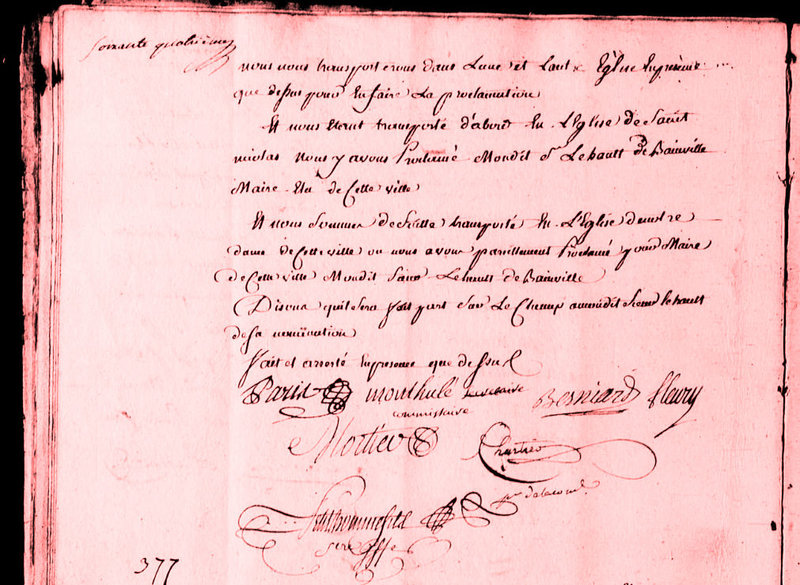 soixante quatrieme
nous nous transporterons dans Lune et Lautre Eglise En presence
que dessus pour En faire La proclamation
Et nous Etant transporté d'abord En L'Eglise de Saint
nicolas nous y avons Proclamé Mondit Sr. Lehault de Bainville
Maire Elu de Cette ville
Et nous Sommes de Suitte transporté En L'Eglise de notre
dame de Cette ville ou nous avons pareillement Proclamé pour Maire
de Cette ville Mondit Sieur Lehault de Bainville
Disons quil sera fait part Sur Le Champ aumdit Sieur lehault
de sa nomination
fait et arresté En presence que dessus
Paris monthulé Besniard fleury
commissaire
Mortier Chartier
greffe
377